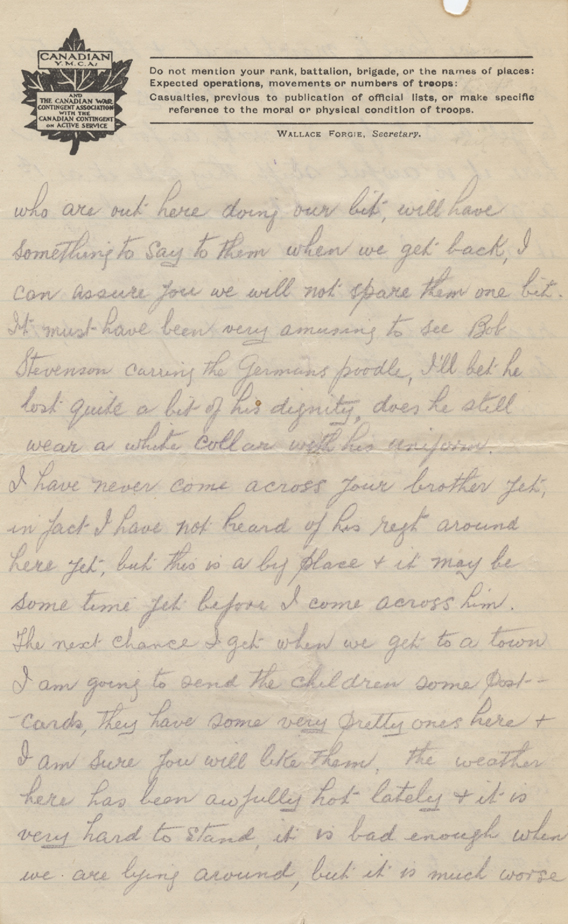 CANADIAN
Y.M.C.A.
AND
THE CANADIAN WAR
CONTINGENT ASSOCIATION
WITH THE
CANADIAN CONTINGENT
ON ACTIVE SERVICE
Do not mention your rank, battalion, brigade, or the names of places:
Expected operations, movements or numbers of troops:
Casualties, previous to publication of official lists, or make specific
reference to the moral or physical condition of troops.
WALLACE FORGIE, Secretary.
who are out here doing our bit, will have
something to say to them when we get back, I
can assure you we will not spare them one bit.
It must have been very amusing to see Bob
Stevenson carring the Germans poodle, I'll bet he
lost quite a bit of his dignity, does he still
wear a white collar with his uniform.
I have never come across your brother yet,
in fact I have not heard of his regt around
here yet, but this is a big place + it may be
some time yet before I come across him.
The next chance I get when we get to a town
I am going to send the children some post-
-cards, they have some very pretty ones here +
I am sure you will like them. the weather
here has been awfully hot lately + it is
very hard to stand, it is bad enough when
we are lying around, but it is much worse